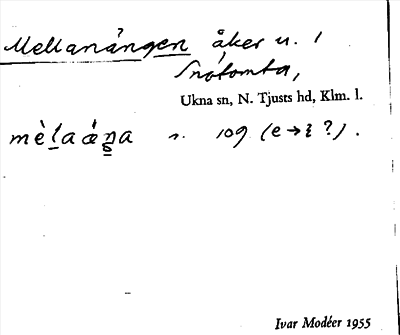 Mellanängen åker n. 1
Snötomta,
Ukna sn, N. Tjusts hd, Klm. l.
109 (e→i ?).
Ivar Modéer 1955